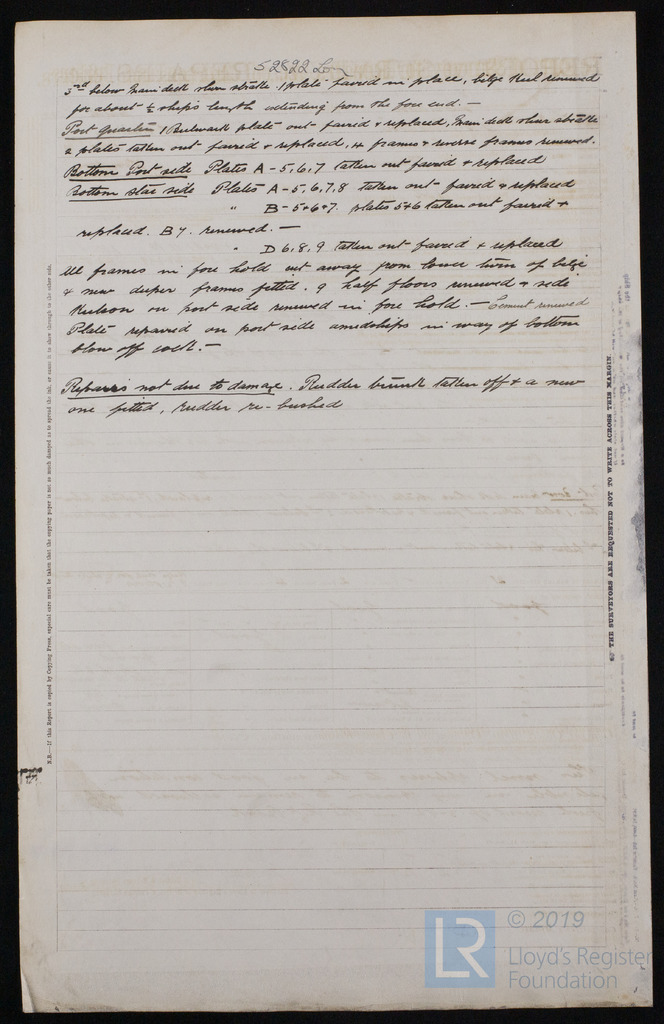 52822 Lon
3rd below main deck sheer strake 1 plate faired in place, bilge keel renewed
for about ½ ship's length extending from the fore end. —
Port Quarter 1 Bulwark plate out faired & replaced, Main deck sheer strake
2 plates taken out faired & replaced, 4 frames & reverse frames renewed.
Bottom Port side Plates A-5,6,7 taken out faired & replaced
Bottom star side Plates A-5,6,7,8 taken out faired & replaced
" B-5 & 6 & 7. plates 5 & 6 taken out faired &
replaced. B 7. renewed. —
" D 6, 8, 9 taken out faired & replaced
All frames in fore hold cut away from lower turn of bilge
& new deeper frames fitted. 9 half floors renewed & side
keelson on port side renewed in fore hold. — Cement renewed
Plate repaired on port side amidships in way of bottom
blow off cock. —
Repairs not due to damage. Rudder trunk taken off & a new
one fitted, rudder re-bushed
N.B.—If this Report is copied by Copying Press, especial care must be taken that the copying paper is not so much damped as to spread the ink, or cause it to show through to the other side.
THE SURVEYORS ARE REQUESTED NOT TO WRITE ACROSS THIS MARGIN.
LR
© 2019
Lloyd's Register
Foundation